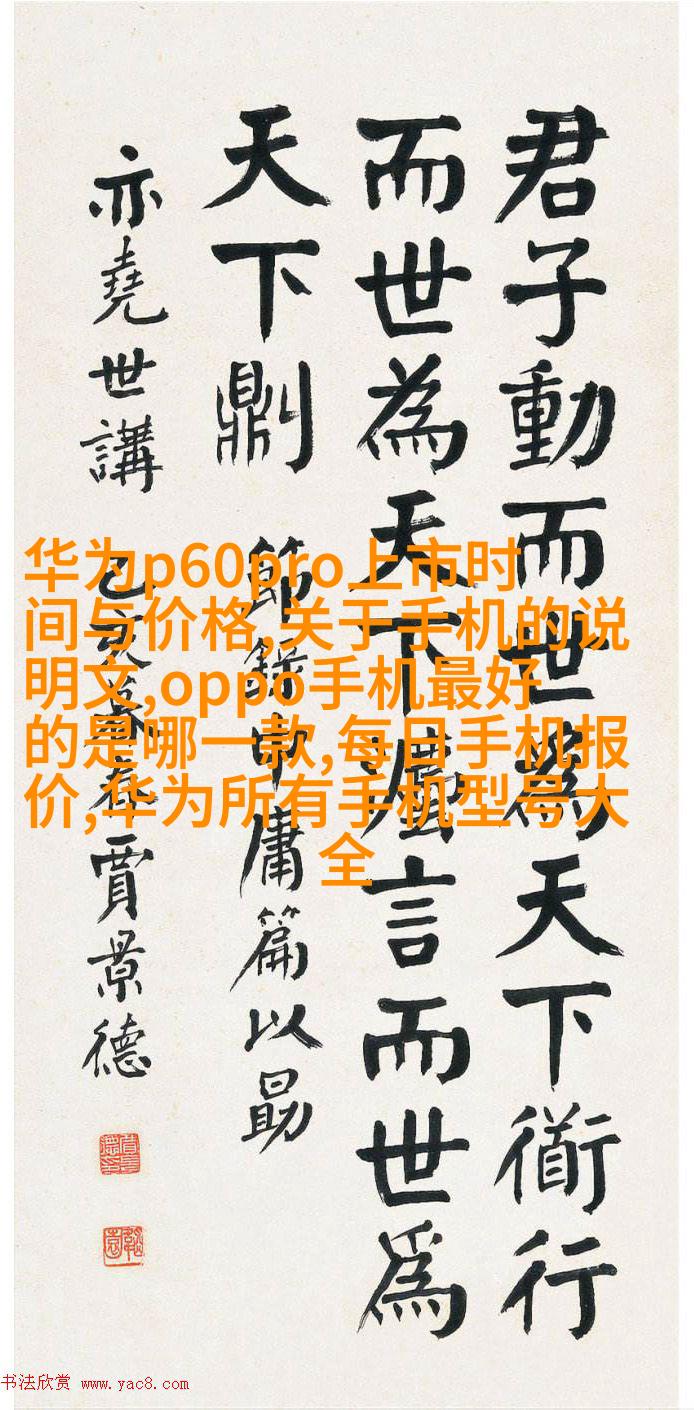 君子動而世爲天下衜行
而世為天下灋言而世為
天下
節錄中庸篇以勗
亦堯世講
己亥春賈景德
华为p60pro上市时
间与价格,关于手机的说
明文,oppo手机最好
的是哪一款,每日手机报
价,华为所有手机型号大
全
书法欣赏 www.yac8.com